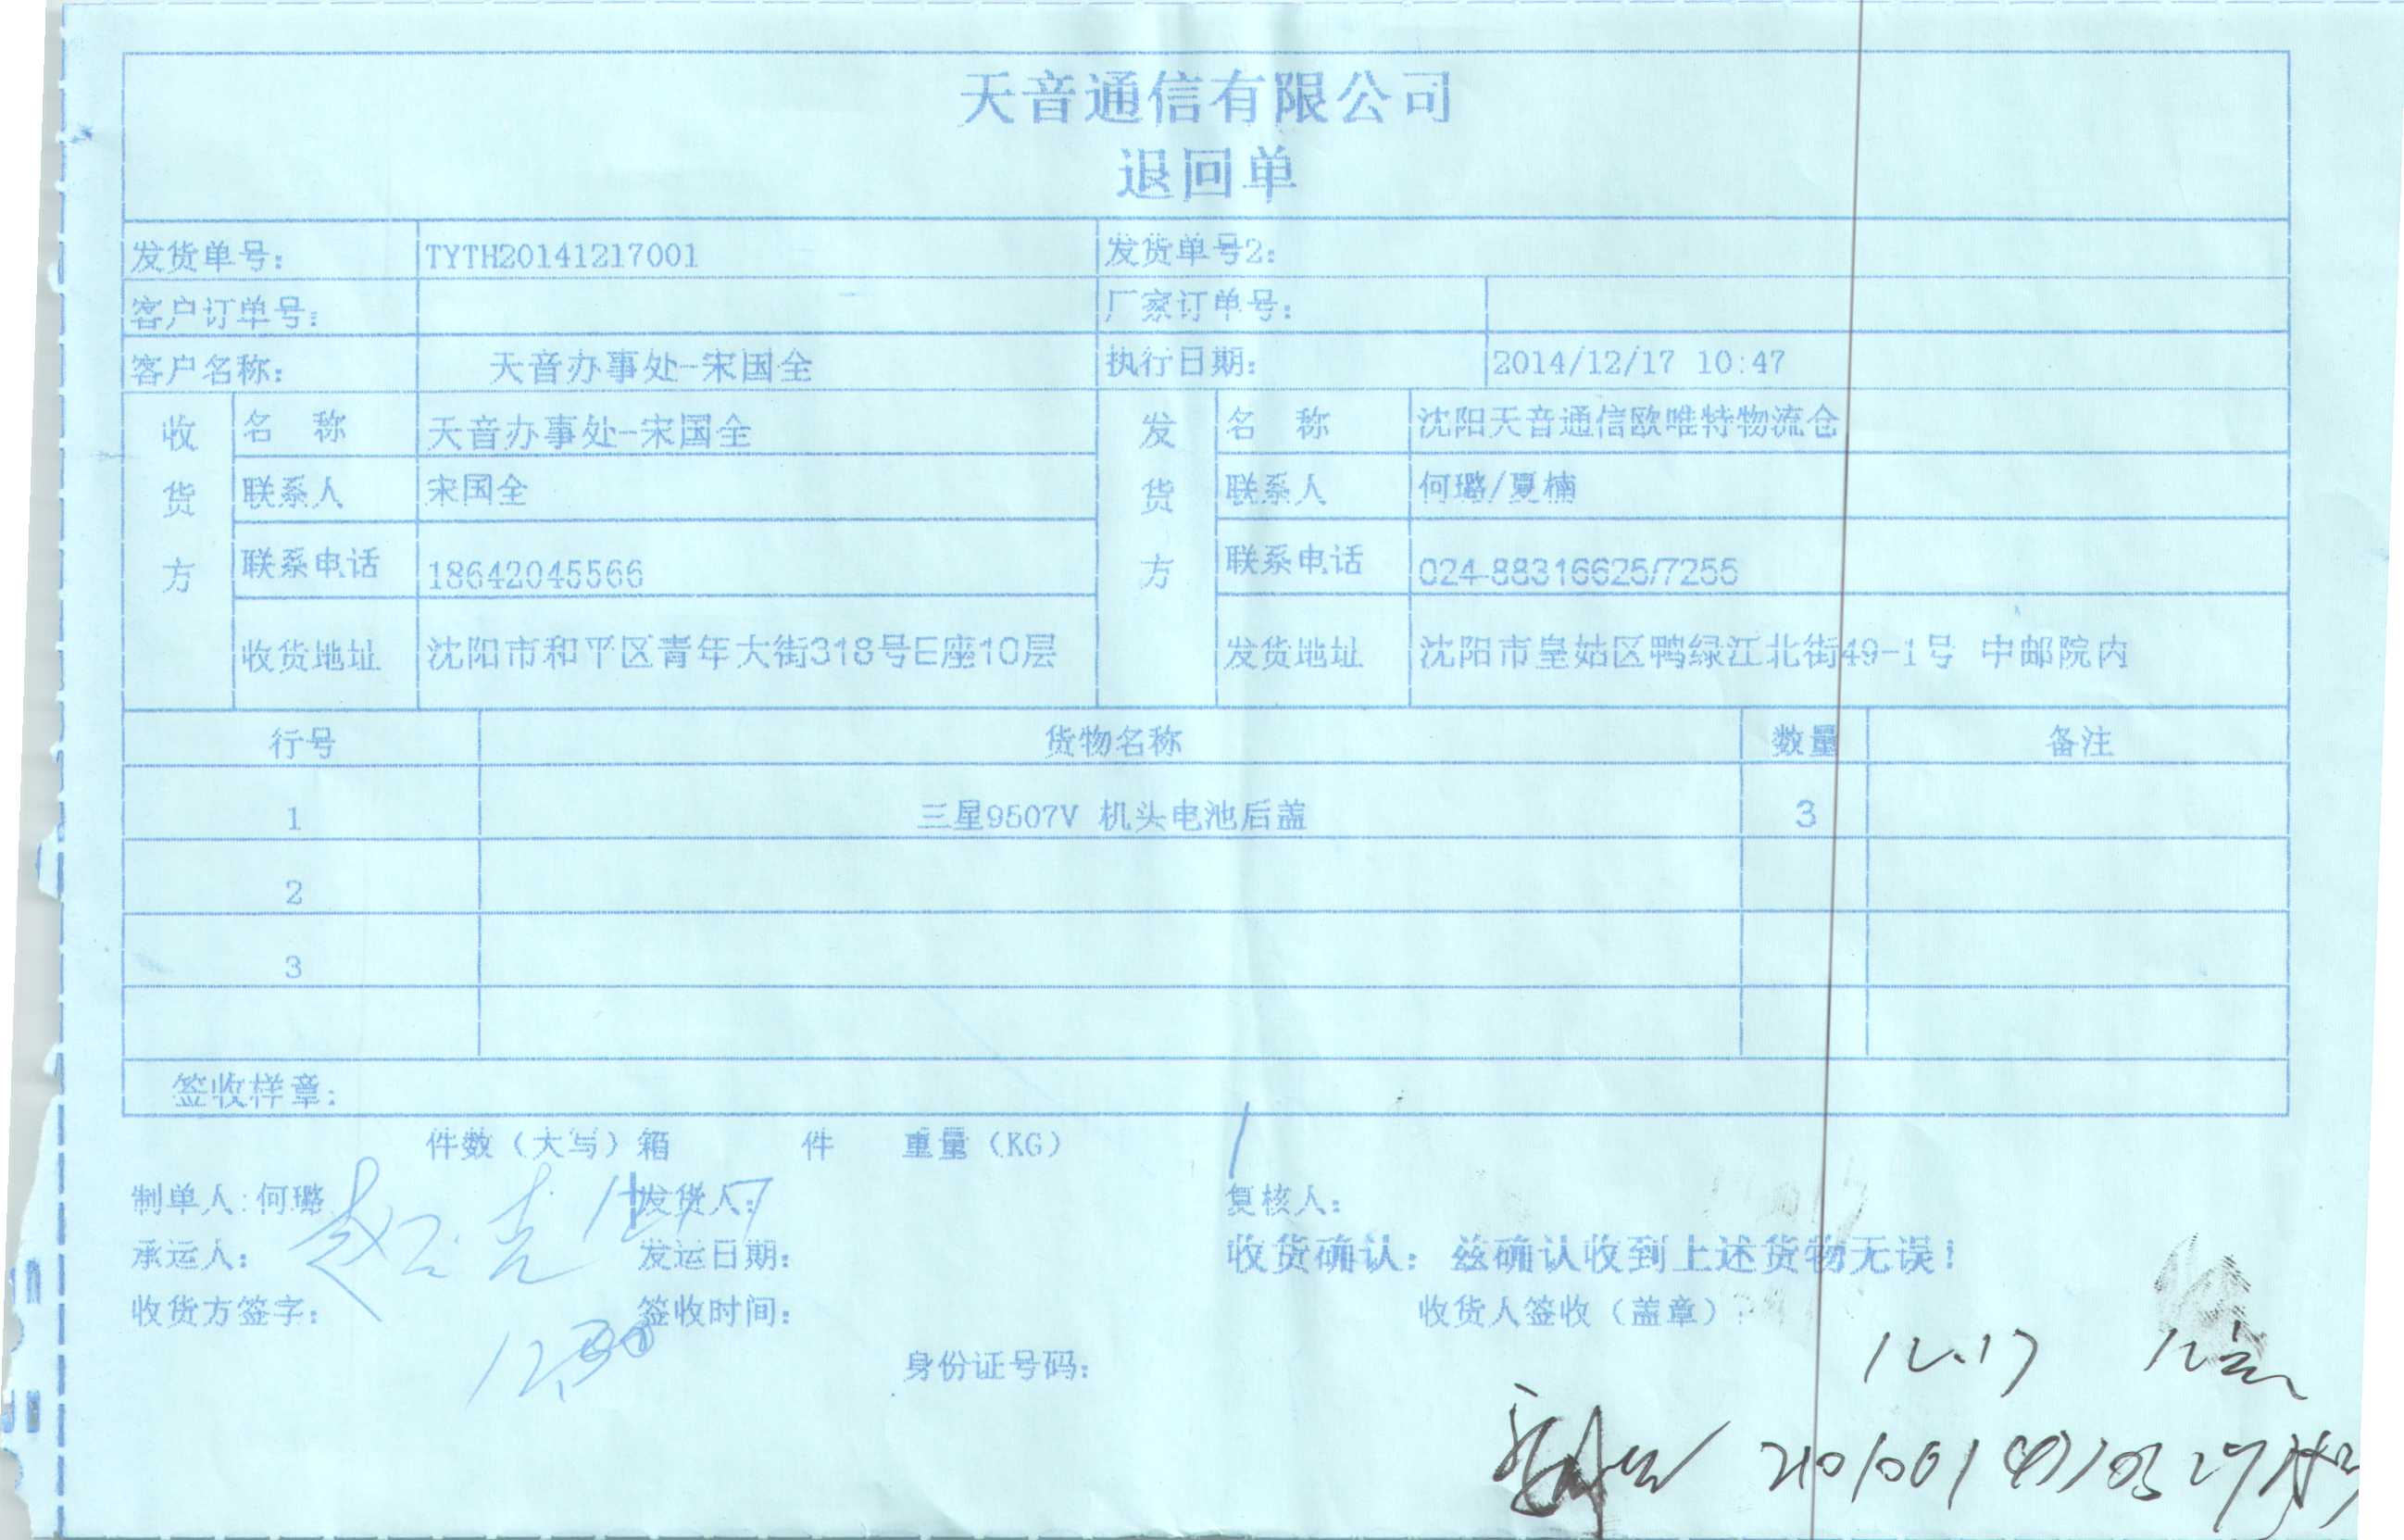 天音通信有限公司
退回单
发货单号： TYTH20141217001 发货单号2：
客户订单号： 厂家订单号：
客户名称： 天音办事处-宋国全 执行日期： 2014/12/17 10:47
收货方 发货方
名 称 天音办事处-宋国全 名 称 沈阳天音通信欧唯特物流仓
联系人 宋国全 联系人 何璐/夏楠
联系电话 18642045566 联系电话 024-88316625/7255
收货地址 沈阳市和平区青年大街318号E座10层 发货地址 沈阳市皇姑区鸭绿江北街49-1号 中邮院内
行号 货物名称 数量 备注
1 三星9507V 机头电池后盖 3
2
3
签收样章：
件数（大写）箱 件 重量（KG）
制单人:何璐 发货人： 复核人：
承运人： 发运日期： 收货确认：兹确认收到上述货物无误！
收货方签字： 签收时间： 收货人签收（盖章）
身份证号码：
12.17